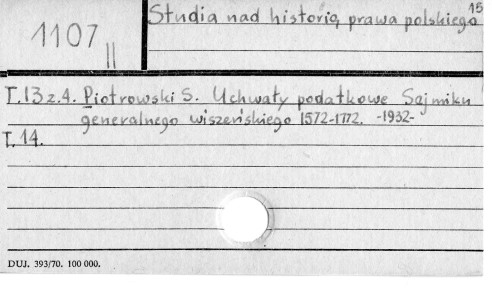 15
1107 II
Studia nad historią prawa polskiego
T.13 z.4. Piotrowski S. Uchwały podatkowe Sejmiku
generalnego wiszeńskiego 1572-1772. -1932-
T.14.
DUJ. 393/70. 100 000.